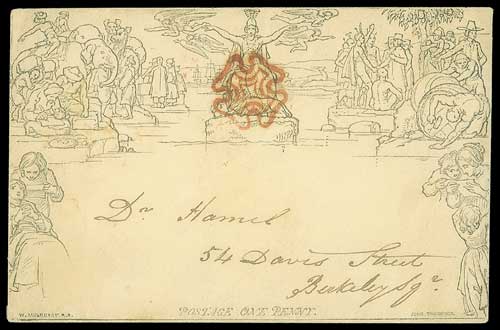 Dr Hamel
54 Davis Street
Berkeley Sqr.
POSTAGE ONE PENNY.
W. MULREADY. R.A.
JOHN THOMPSON.